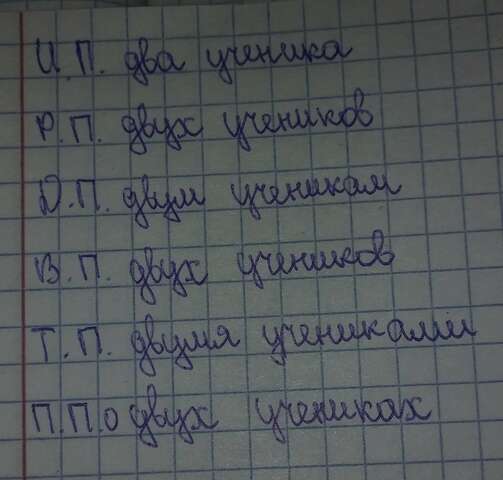 И.П. два ученика
Р.П. двух учеников
Д.П. двум ученикам
В.П. двух учеников
Т.П. двумя учениками
П.П. о двух учениках